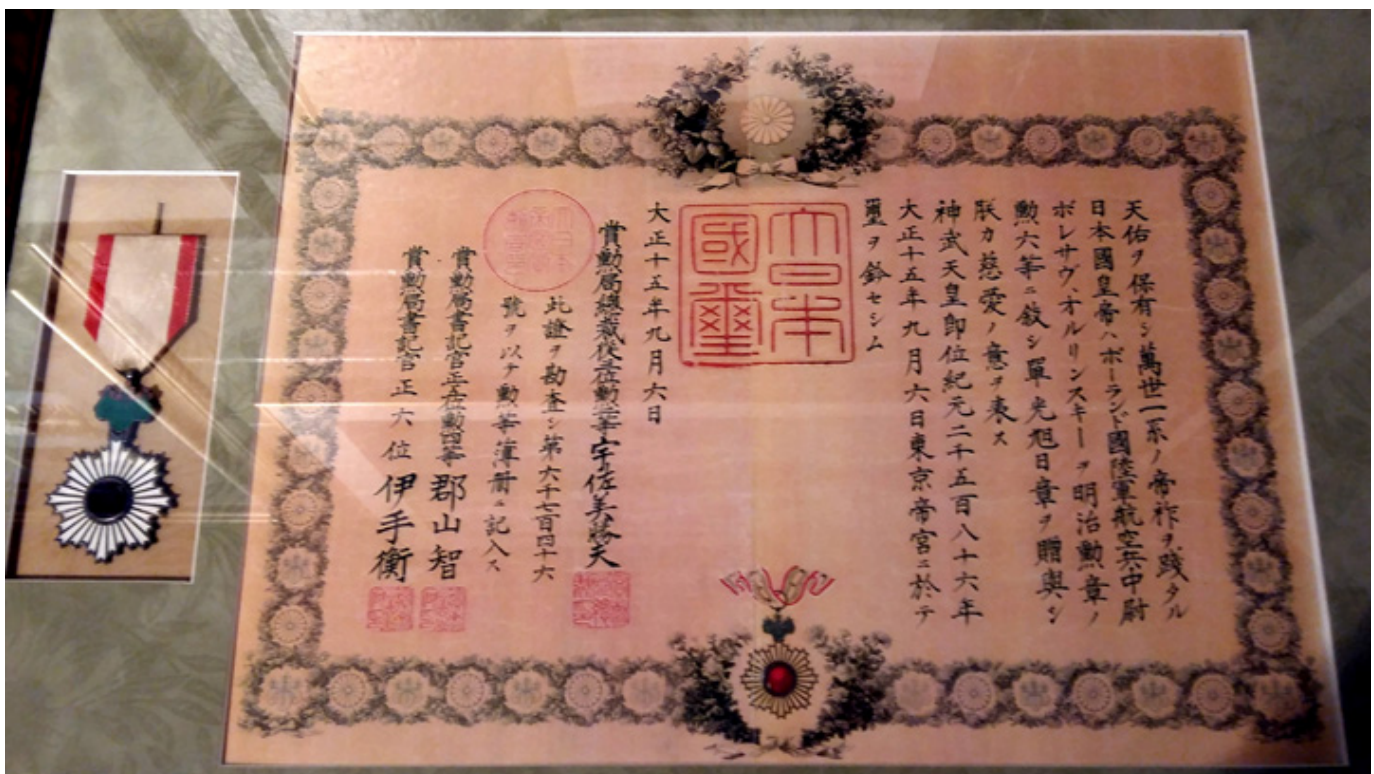 天佑ヲ保有シ萬世一系ノ帝祚ヲ踐タル
日本國皇帝ハポーランド國陸軍航空兵中尉
ボレサヴ、オルリンスキーヲ明治勲章ノ
勲六等ニ敍シ單光旭日章ヲ贈與シ
朕カ慈愛ノ意ヲ表ス
神武天皇即位紀元二千五百八十六年
大正十五年九月六日東京帝宮ニ於テ
璽ヲ鈐セシム
大日本
國璽
大正十五年九月六日
賞勲局總裁從三位勲一等宇佐美勝夫
此證ヲ勘査シ第六千七百四十六
號ヲ以テ勲等簿册ニ記入ス
賞勲局書記官正五位勲四等郡山智
賞勲局書記官正六位伊手衡